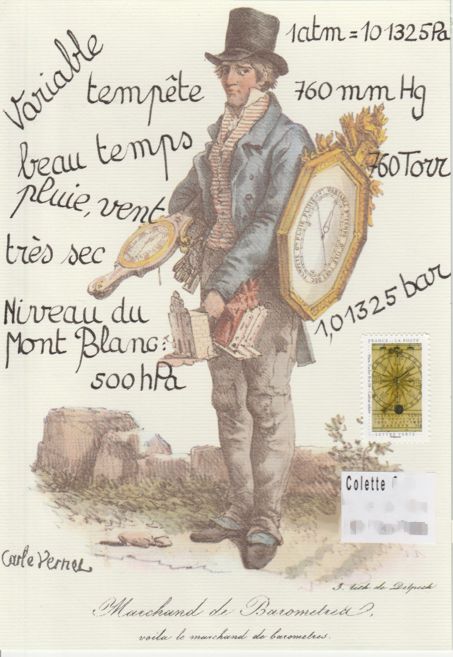 Variable
tempête
beau temps
pluie, vent
très sec
Niveau du
Mont Blanc:
500hPa
1atm = 101325Pa
760 mm Hg
760 Torr
1,01325 bar
FRANCE - LA POSTE
LETTRE VERTE
Colette
Carle Vernet
I. lith de Delpech
Marchand de Barometres,
voila le marchand de barometres.